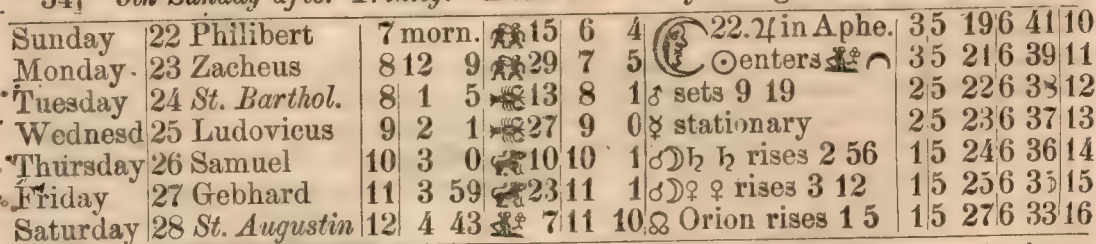 Sunday 22 Philibert 7 morn. 15 6 4 22. ♃ in Aphe. 3 5 19 6 41 10
Monday 23 Zacheus 8 12 9 29 7 5 ☉ enters 3 5 21 6 39 11
Tuesday 24 St. Barthol. 8 1 5 13 8 1 ♂ sets 9 19 2 5 22 6 38 12
Wednesd 25 Ludovicus 9 2 1 27 9 0 ☿ stationary 2 5 23 6 37 13
Thursday 26 Samuel 10 3 0 10 10 1 ☌☽♄ ♄ rises 2 56 1 5 24 6 36 14
Friday 27 Gebhard 11 3 59 23 11 1 ☌☽♀ ♀ rises 3 12 1 5 25 6 35 15
Saturday 28 St. Augustin 12 4 43 7 11 10 ☊ Orion rises 1 5 1 5 27 6 33 16